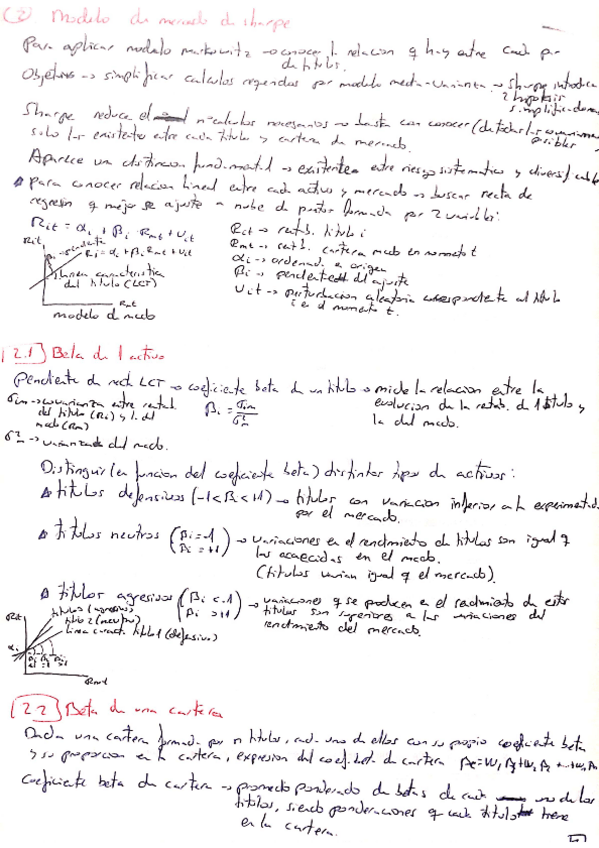 (2) Modelo de mercado de Sharpe
Para aplicar modelo markowitz → conocer la relacion q hay entre cada par
de titulos.
Objetivo → simplificar calculos requeridos por modelo media-varianza → Sharpe introduce
2 hipotesis
simplificadoras
Sharpe reduce el nº calculos necesarios → basta con conocer (de todas las covarianzas
posibles
solo las existentes entre cada titulo y cartera de mercado.
Aparece una distincion fundamental → existente entre riesgo sistematico y diversificable
Para conocer relacion lineal entre cada activo y mercado → buscar recta de
regresión q mejor se ajuste a nube de puntos formada por 2 variables:
Rit = αi + βi Rmt + Uit
Rit → rentb. titulo i
Rit
Rmt → rentb. cartera mcdo en momento t
Ri = αi + βi Rmt + Uit
αi → ordenada a origen
βi → pendiente del ajuste
linea caracteristica
del titulo (LCT)
Uit → perturbacion aleatoria correspondiente al titulo
i en el momento t.
Rmt
modelo d mcdo
(2.1) Beta de 1 activo
Pendiente de recta LCT → coeficiente beta de un titulo → mide la relacion entre la
evolucion de la rentab. de 1 titulo y
la del mcdo.
σim → covarianza entre rentab.
del titulo (Ri) y l. del
mcdo (Rm)
βi = σim / σ²m
σ²m → varianza del mcdo.
Distinguir (en funcion del coeficiente beta) distintos tipo de activos:
titulos defensivos (-1<β<+1) → titulos con variacion inferior a la experimentada
por el mercado.
titulos neutros (βi=-1
βi=+1) → variaciones en el rendimiento de titulos son igual q
las acaecidas en el mcdo.
(titulos varian igual q el mercado).
titulos agresivos (βi<-1
βi>+1) → variaciones q se producen en el rendimiento de estos
titulos son superiores a las variaciones del
rendimiento del mercado.
Rit
titulo 1 (agresivo)
titulo 2 (neutro)
linea caract. titulo 1 (defensivo)
αi
Rmt
(2.2) Beta de una cartera
Dada una cartera formada por n titulos, cada uno de ellos con su propio coeficiente beta
y su proporcion en la cartera, expresion del coef. beta de cartera
Coeficiente beta de cartera → promedio ponderado de betas de cada uno de los
titulos, siendo ponderaciones q cada titulo tiene
en la cartera.